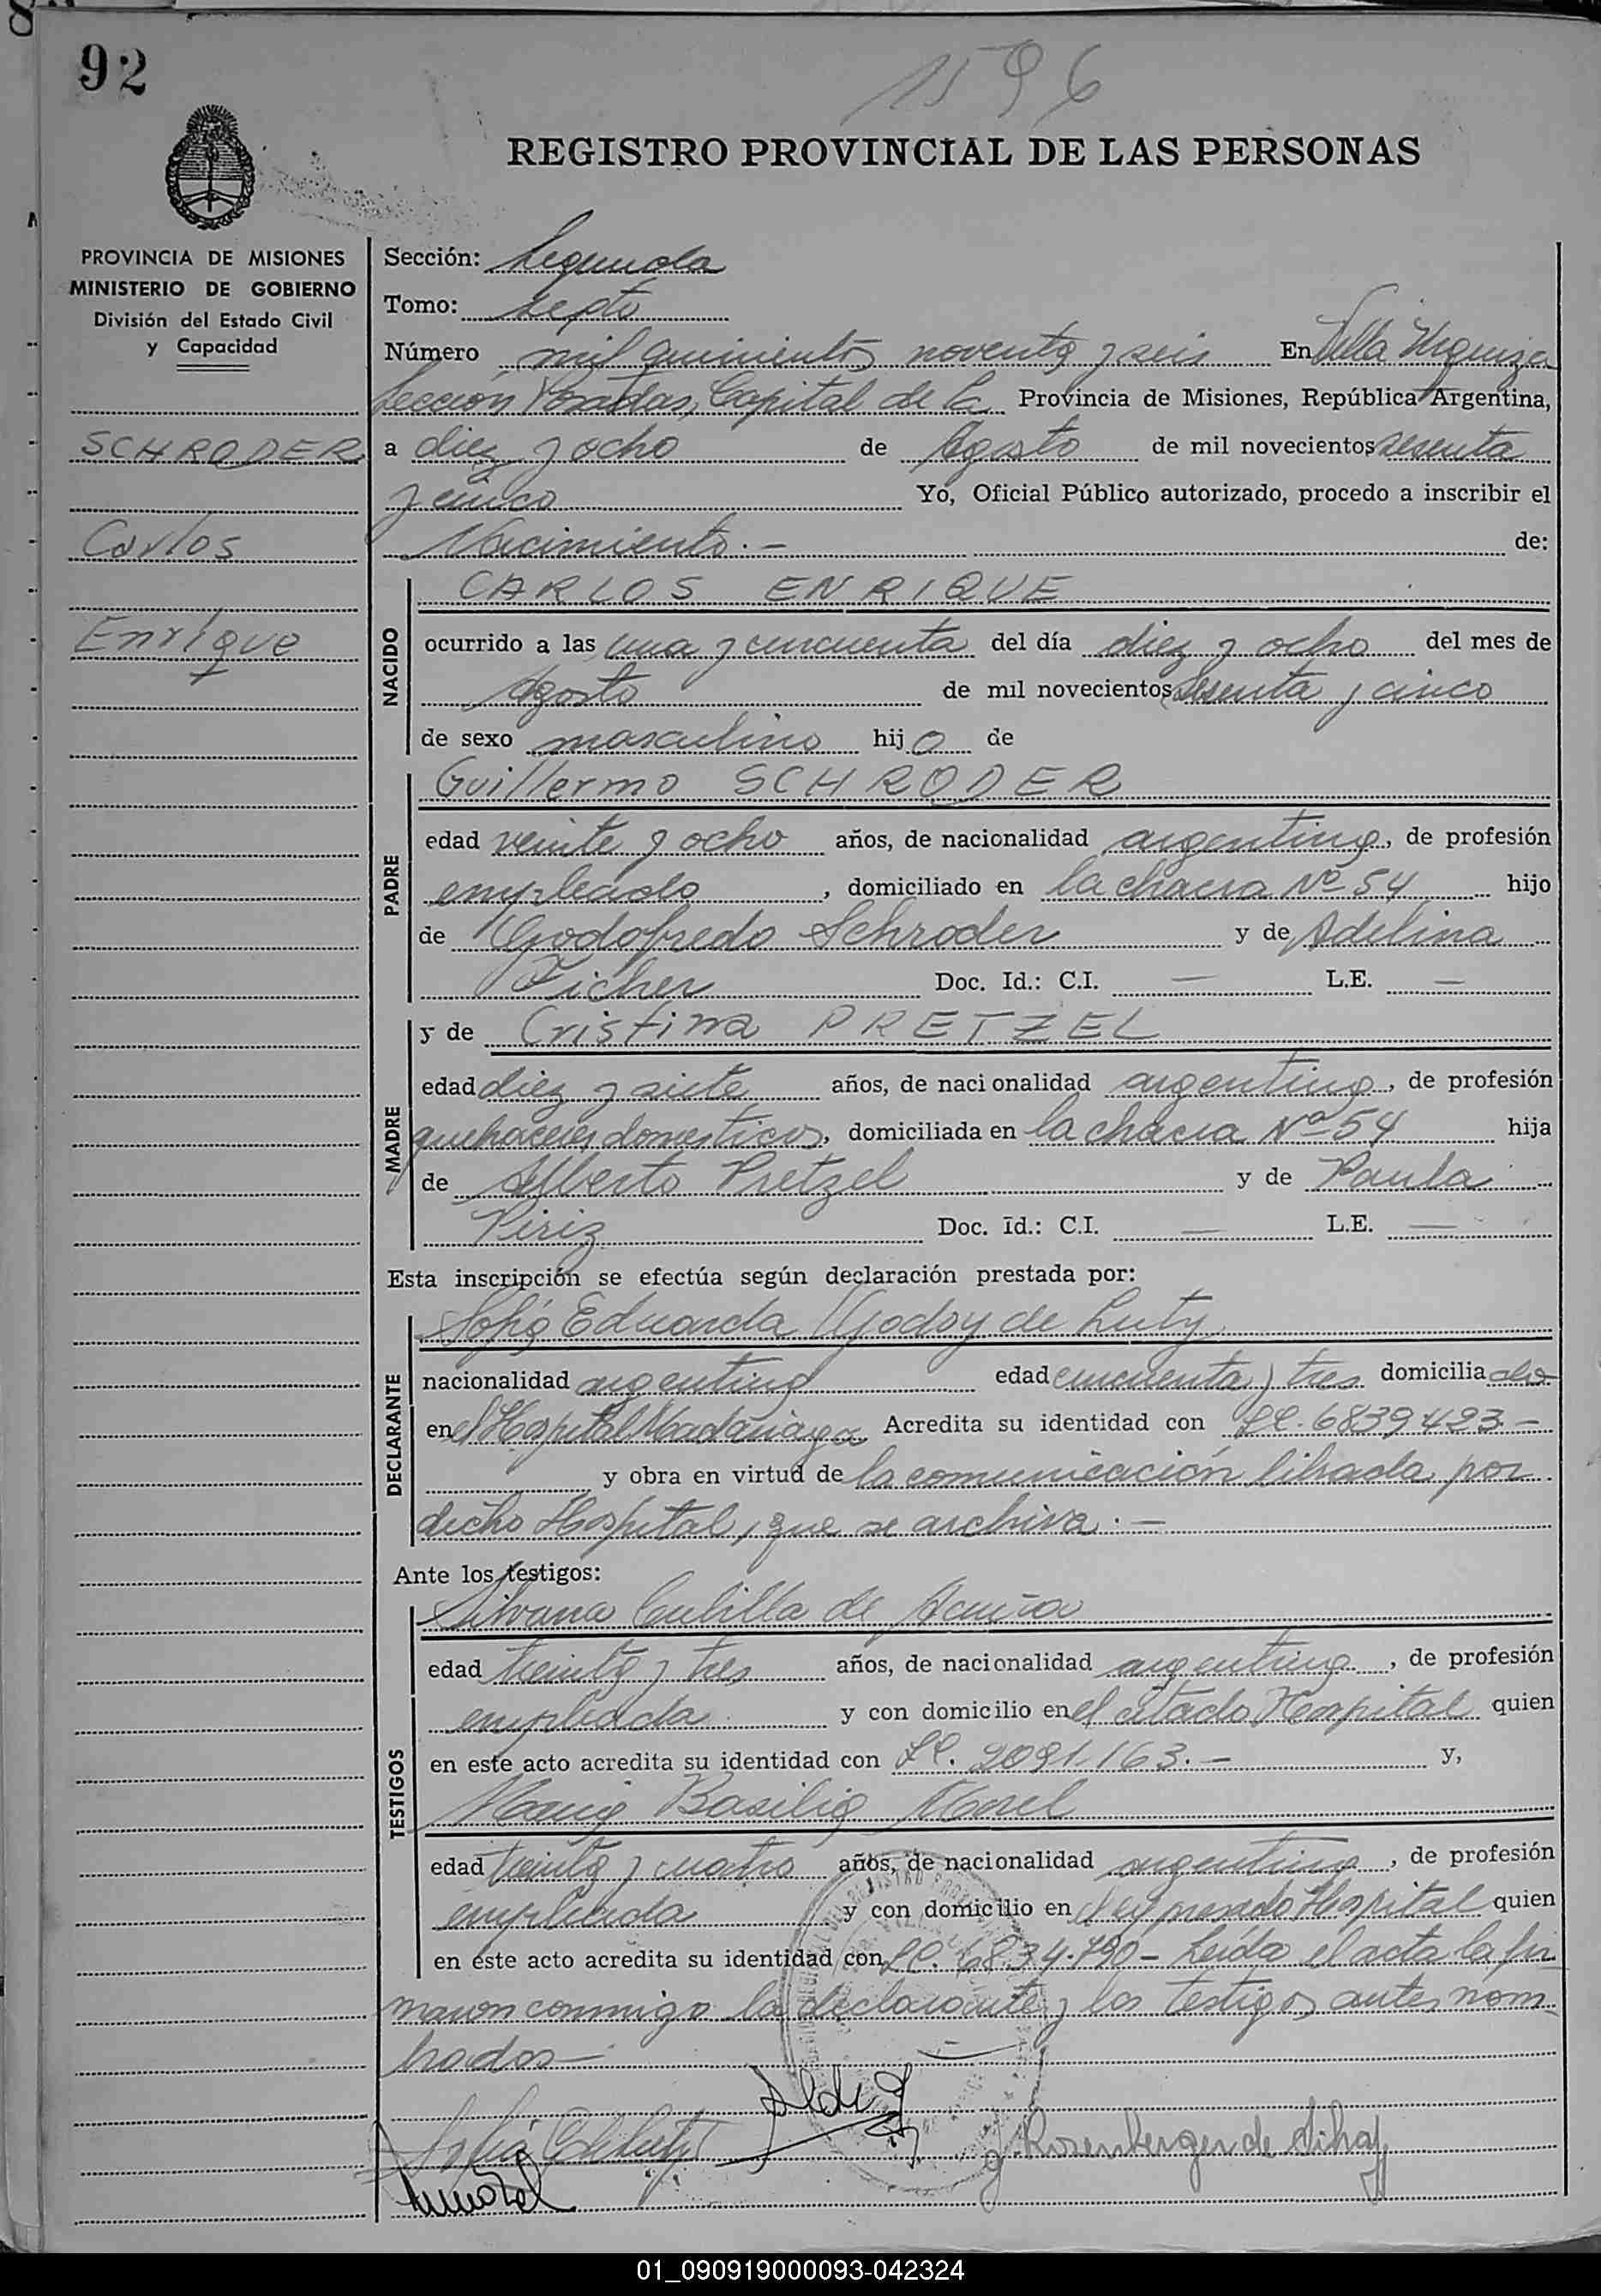 92
1596
REGISTRO PROVINCIAL DE LAS PERSONAS
PROVINCIA DE MISIONES
MINISTERIO DE GOBIERNO
División del Estado Civil
y Capacidad
SCHRODER
Carlos
Enrique
Sección: Segunda
Tomo: septo
Número mil quinientos noventa y seis En Villa Urquiza
Sección Posadas, Capital de la Provincia de Misiones, República Argentina,
a diez y ocho de Agosto de mil novecientos sesenta
y cinco Yo, Oficial Público autorizado, procedo a inscribir el
Nacimiento.- de:
NACIDO
CARLOS ENRIQUE
ocurrido a las una y cincuenta del día diez y ocho del mes de
Agosto de mil novecientos sesenta y cinco
de sexo masculino hijo de
PADRE
Guillermo SCHRODER
edad veinte y ocho años, de nacionalidad argentina, de profesión
empleado, domiciliado en la chacra Nº 54 hijo
de Godofredo Schroder y de Adelina
Ficher Doc. Id.: C.I. — L.E. —
MADRE
y de Cristina PRETZEL
edad diez y siete años, de nacionalidad argentina, de profesión
quehaceres domesticos, domiciliada en la chacra Nº 54 hija
de Alberto Pretzel y de Paula
Piriz Doc. Id.: C.I. — L.E. —
Esta inscripción se efectúa según declaración prestada por:
DECLARANTE
Sofía Eduarda Godoy de Luty
nacionalidad argentina edad cincuenta y tres domiciliado
en el Hospital Madariaga Acredita su identidad con LC. 6839423.-
y obra en virtud de la comunicación librada por
dicho Hospital, que se archiva.-
Ante los testigos:
TESTIGOS
Silvana Cubilla de Acuña
edad treinta y tres años, de nacionalidad argentina, de profesión
empleada y con domicilio en el citado Hospital quien
en este acto acredita su identidad con LC. 2091.163.- y,
María Basilia Morel
edad treinta y cuatro años, de nacionalidad argentina, de profesión
empleada y con domicilio en el expresado Hospital quien
en este acto acredita su identidad con LC. 6834.790- Leída el acta la fir
maron conmigo la declarante y los testigos antes nom
brados-
Rosenberger de
01_090919000093-042324